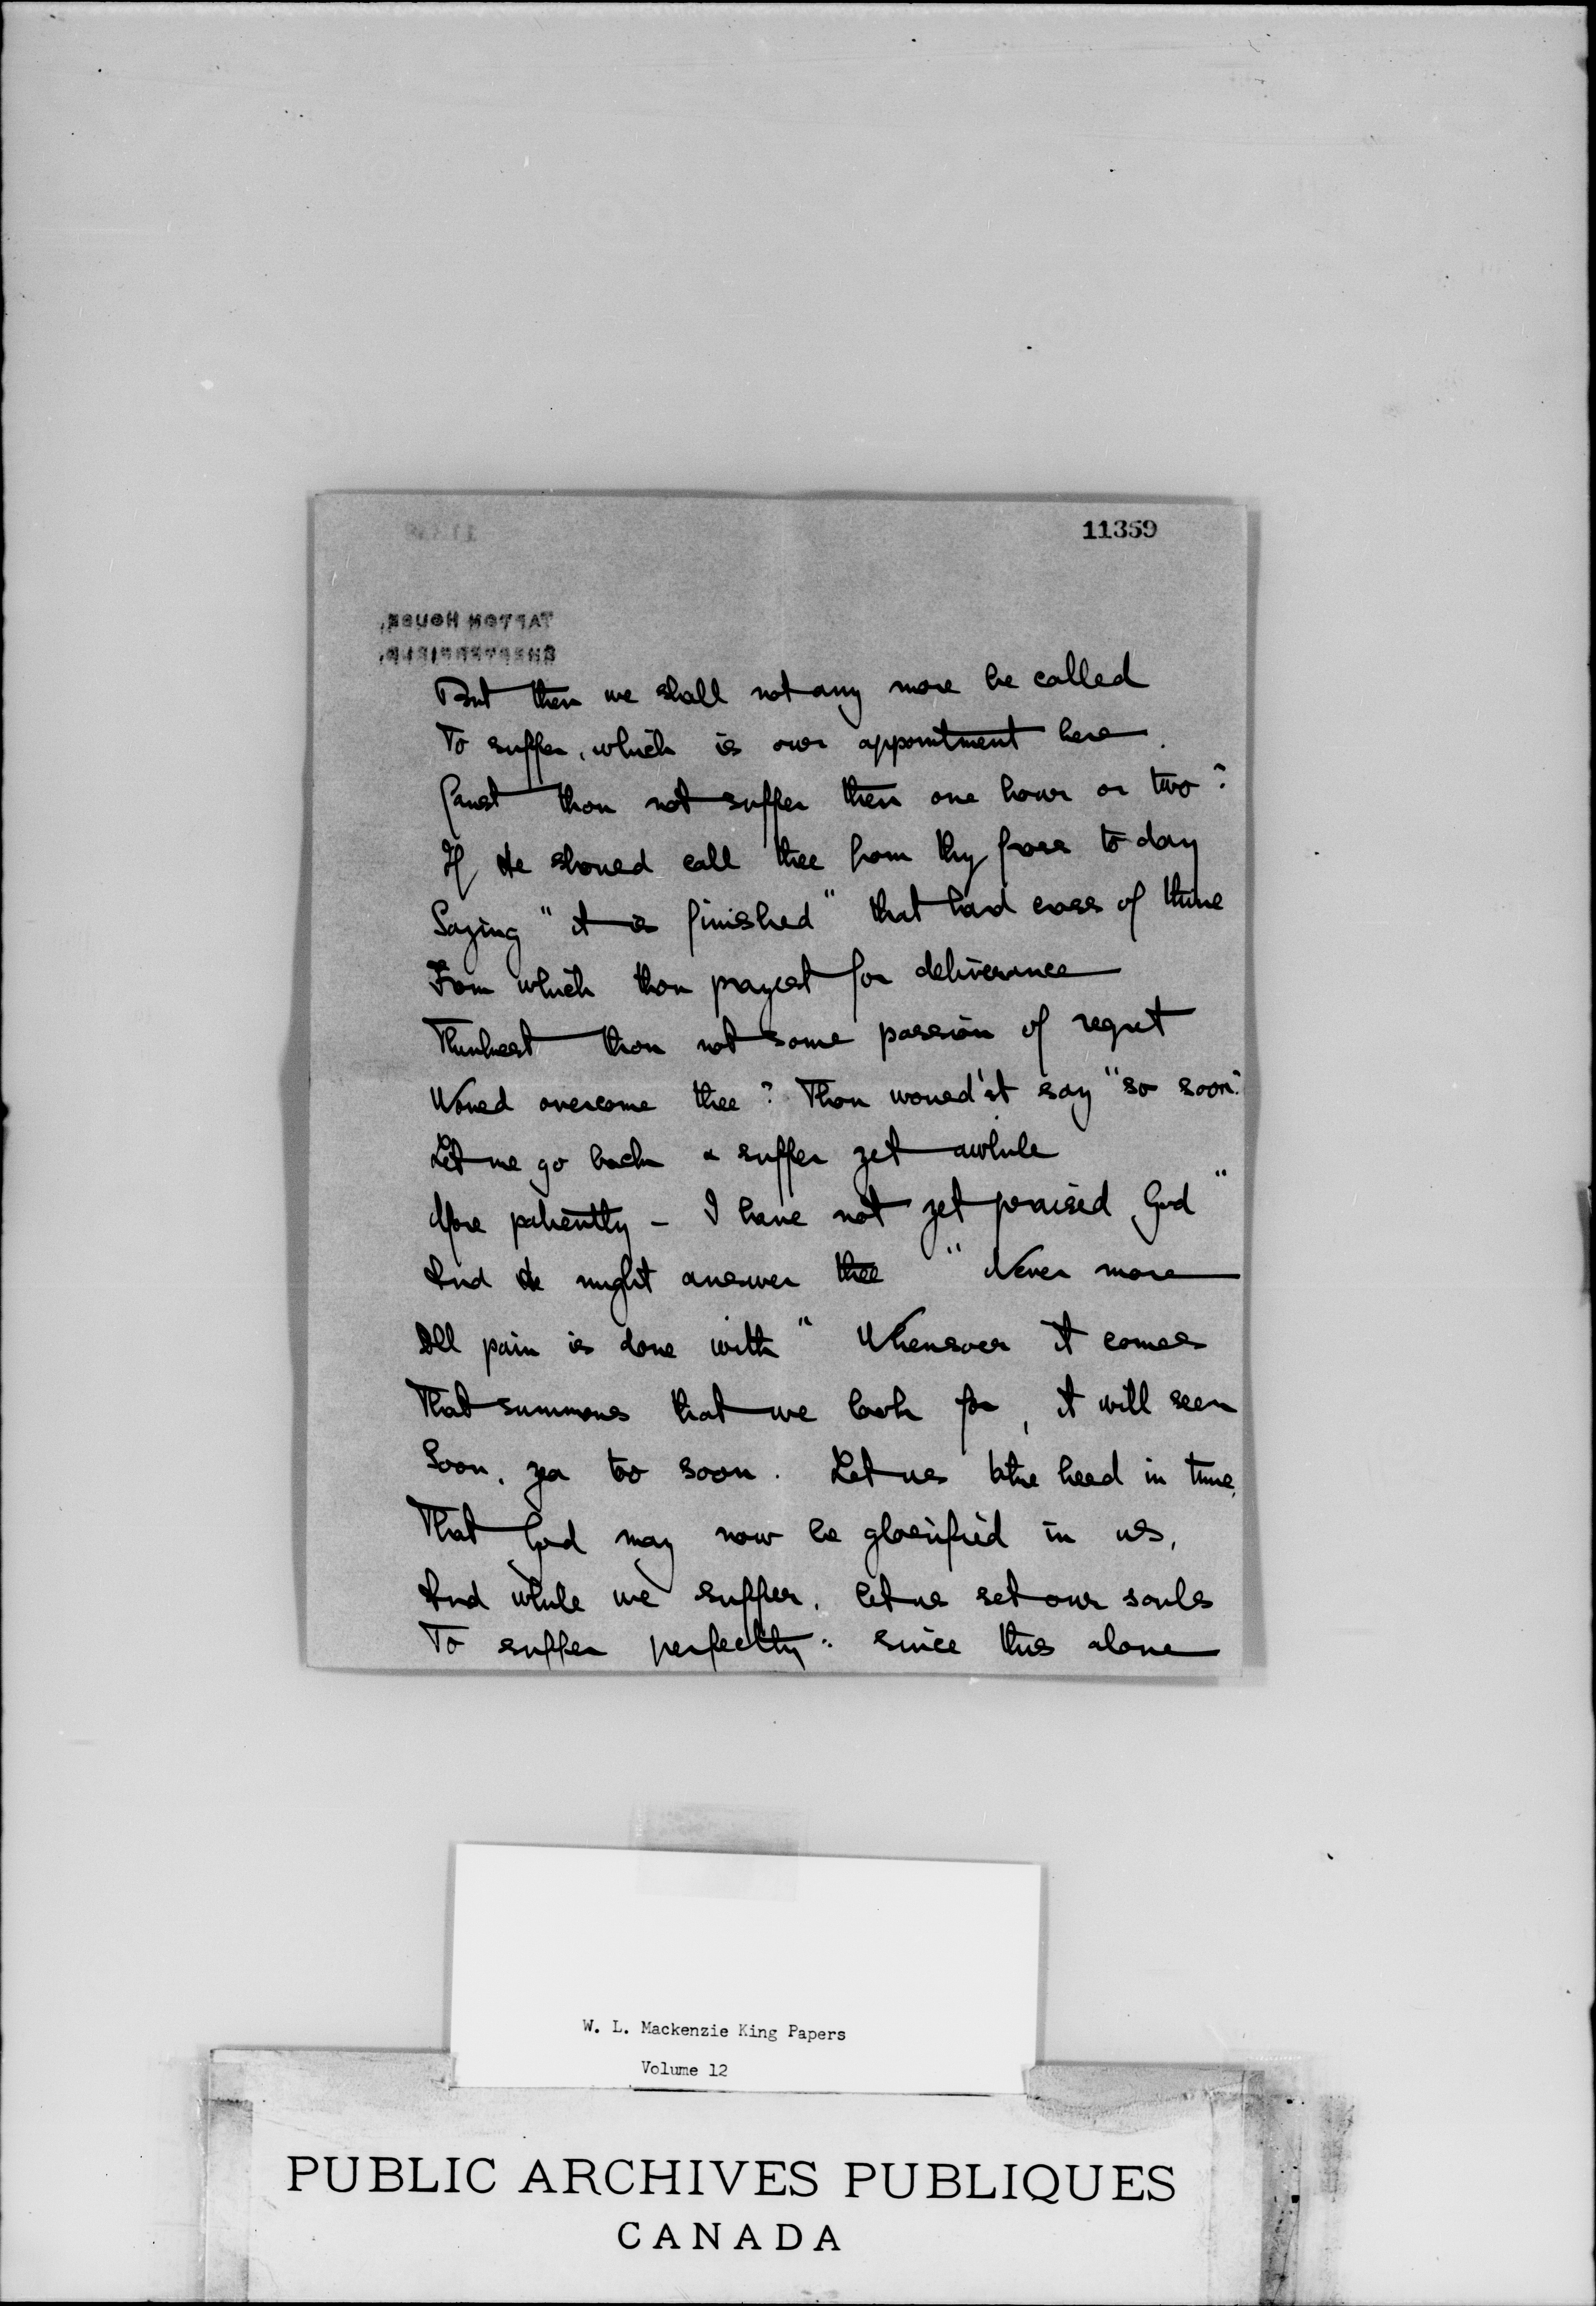 11359
TAPTON HOUSE,
CHESTERFIELD.
But then we shall not any more be called
To suffer, which is our appointment here.
Canst thou not suffer then one hour or two?
If He should call thee from thy cross to day
Saying "it is finished" that hard cross of thine
From which thou prayest for deliverance
Thinkest thou not some passion of regret
Would overcome thee? Thou would'st say "so soon?
Let me go back & suffer yet awhile
More patiently - I have not yet praised God"
And He might answer thee "Never more
All pain is done with" Whensoer it comes
That summons that we look for, it will seem
Soon, yea too soon. Let us take heed in time,
That God may now be glorified in us,
And while we suffer, let us set our souls
To suffer perfectly: since this alone
W. L. Mackenzie King Papers
Volume 12
PUBLIC ARCHIVES PUBLIQUES
CANADA